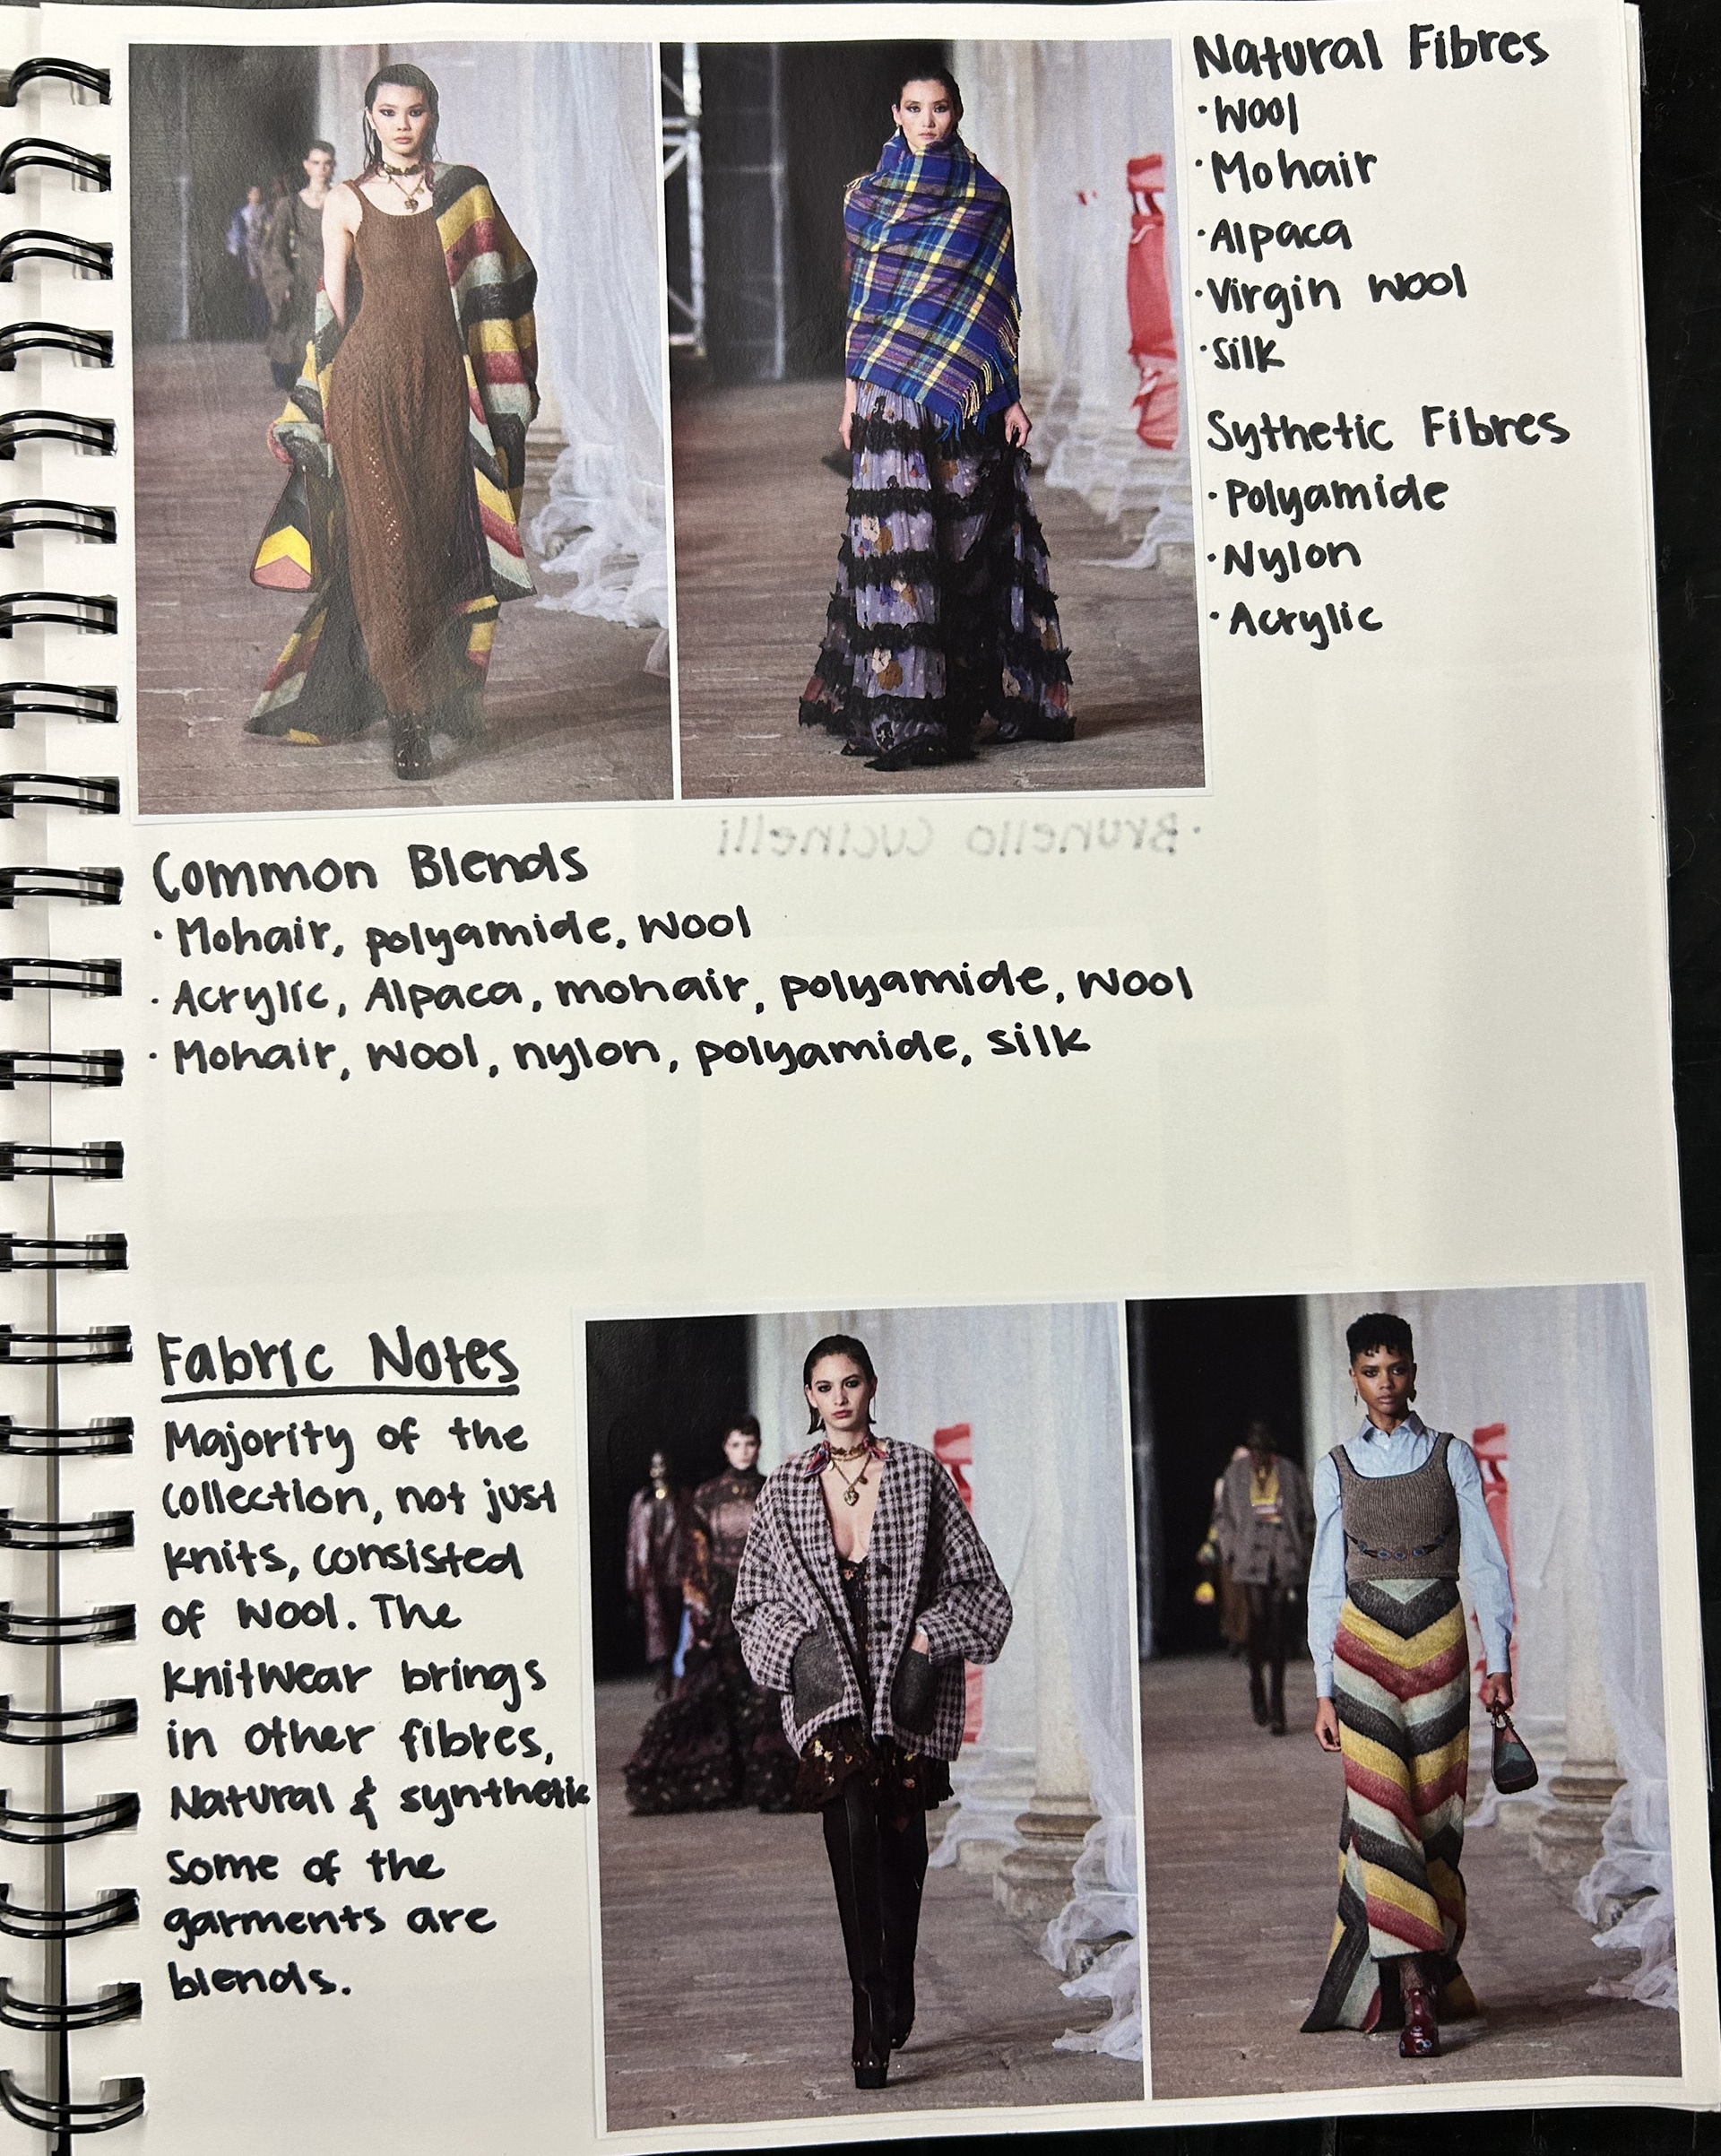 Natural Fibres
• Wool
• Mohair
• Alpaca
• Virgin Wool
• Silk
Sythetic Fibres
• Polyamide
• Nylon
• Acrylic
• Brunello Cucinelli
Common Blends
• Mohair, polyamide, Wool
• Acrylic, Alpaca, mohair, polyamide, Wool
• Mohair, Wool, nylon, polyamide, silk
Fabric Notes
Majority of the
collection, not just
knits, consisted
of Wool. The
knitwear brings
in other fibres,
Natural & synthetic
Some of the
garments are
blends.